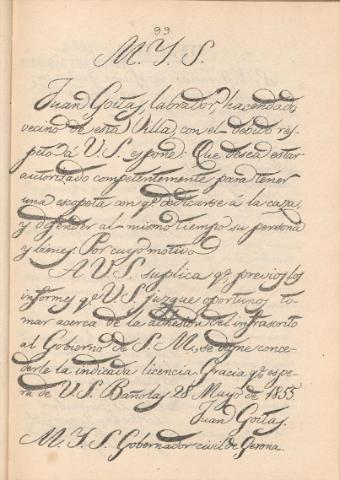 99
M. Y. S.
Juan Goitas, labrador, hacendado,
vecino de esta Villa, con el debido res-
peto á V. S. espone: Que desea estar
autorizado competentemente para tener
una escopeta con qe. dedicarse á la caza,
y defender al mismo tiempo su persona
y lames. Por cuyo motivo
A V. S. suplica qe. previos los
informes qe. V. S. juzgue oportunos to-
mar acerca de la adhesion del infrascrito
al Gobierno de S. M., se digne conce-
derle la indicada licencia. Gracia qe. espe-
ra de V. S. Bañolas 28 Mayo de 1855.
Juan Goitas.
M. Y. S. Gobernador civil de Gerona.